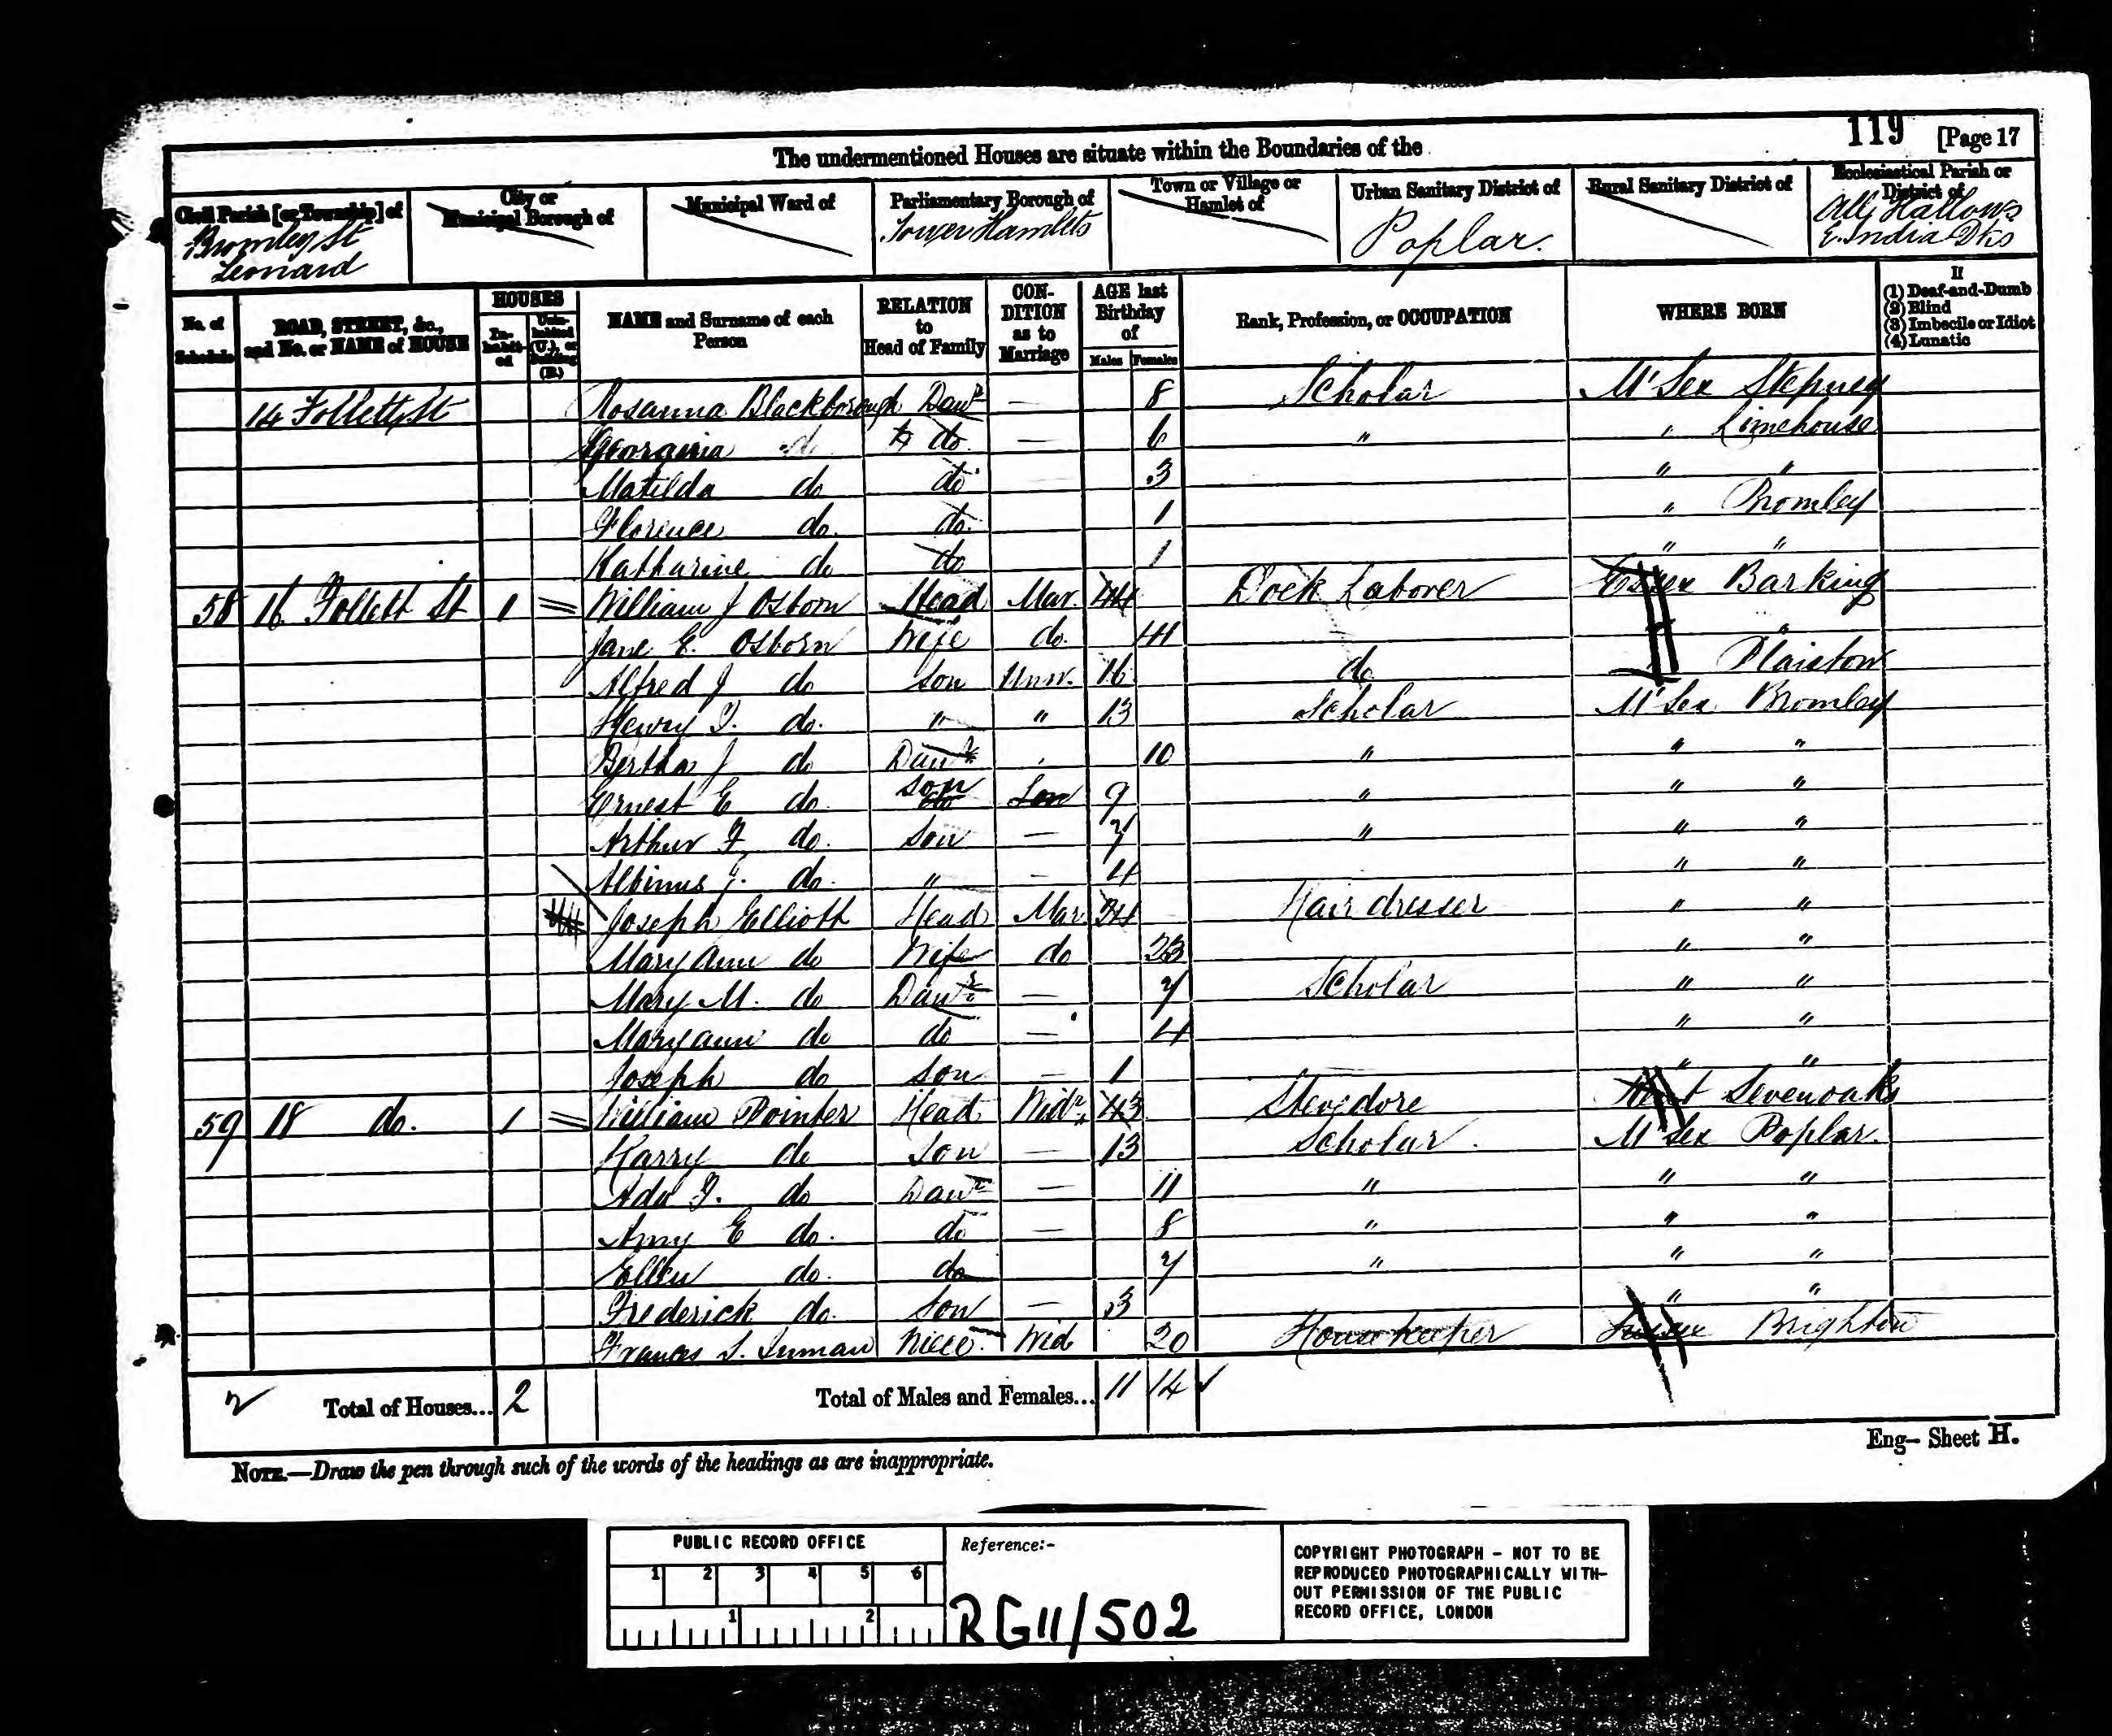 119 [Page 17
The undermentioned Houses are situate within the Boundaries of the
Civil Parish [or Township] of
City or Municipal Borough of
Municipal Ward of
Parliamentary Borough of
Town or Village or Hamlet of
Urban Sanitary District of
Rural Sanitary District of
Ecclesiastical Parish or District of
Bromley St Leonard
Tower Hamlets
Poplar.
All Hallows E. India Dks
No. of Schedule
ROAD, STREET, &c., and No. or NAME of HOUSE
HOUSES
Inhabited
Uninhabited (U.), or Building (B.)
NAME and Surname of each Person
RELATION to Head of Family
CONDITION as to Marriage
AGE last Birthday of
Males Females
Rank, Profession, or OCCUPATION
WHERE BORN
If
(1) Deaf-and-Dumb
(2) Blind
(3) Imbecile or Idiot
(4) Lunatic
14 Follett St Rosanna Blackborough Dawr — 8 Scholar M'Sex Stepney
Georgina do — 6 " " Limehouse
Matilda do do 3 " "
Florence do. do. 1 " Bromley
Katharine do do 1 " "
58 16 Follett St 1 William J Osborn Head Mar. 44 Dock Laborer Essex Barking
Jane E. Osborn Wife do. 41 "
Alfred J do son Unm. 16 do Plaistow
Henry T. do. " " 13 Scholar M'Sex Bromley
Bertha J do Dawr 10 " " "
Ernest E do. son 9 " " "
Arthur F do. son — 7 " " "
Albinus J. do. " — 4 " "
Joseph Elliott Head Mar 34 Hair dresser " "
Mary Ann do Wife do 23 " "
Mary M. do Dawr — 7 Scholar " "
Maryann do do — 4 " "
Joseph do son — 1 " "
59 18 do. 1 William Pointer Head Widr 43 Stevedore Kent Sevenoaks
Harry do Son — 13 Scholar. M'Sex Poplar.
Ada F. do Dawr — 11 " " "
Amy E do. do — 8 " " "
Ellen do. do 7 " " "
Frederick do. Son — 3 " "
Frances S. Niece. Wid 20 House keeper Sussex Brighton
2 Total of Houses... 2 Total of Males and Females... 11 14
Eng— Sheet H.
NOTE.—Draw the pen through such of the words of the headings as are inappropriate.
PUBLIC RECORD OFFICE
1 2 3 4 5 6
1 2
Reference:-
RG11/502
COPYRIGHT PHOTOGRAPH - NOT TO BE
REPRODUCED PHOTOGRAPHICALLY WITH-
OUT PERMISSION OF THE PUBLIC
RECORD OFFICE, LONDON